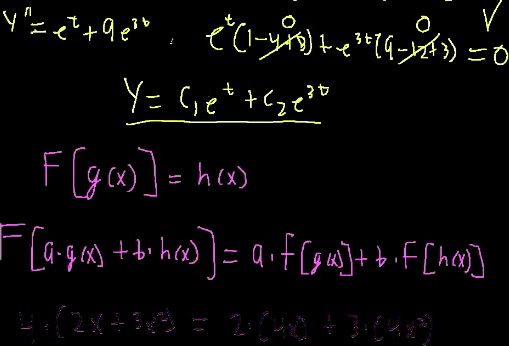 y" = e^t + 9e^3t , e^t(1-4+3) + e^3t(9-12+3) = 0 ✓
0 0
Y = C₁e^t + C₂e^3t
F[g(x)] = h(x)
F[a·g(x) + b·h(x)] = a·f[g(x)] + b·F[h(x)]
4·(2x + 3x²) = 2·(4x) + 3·(4x²)